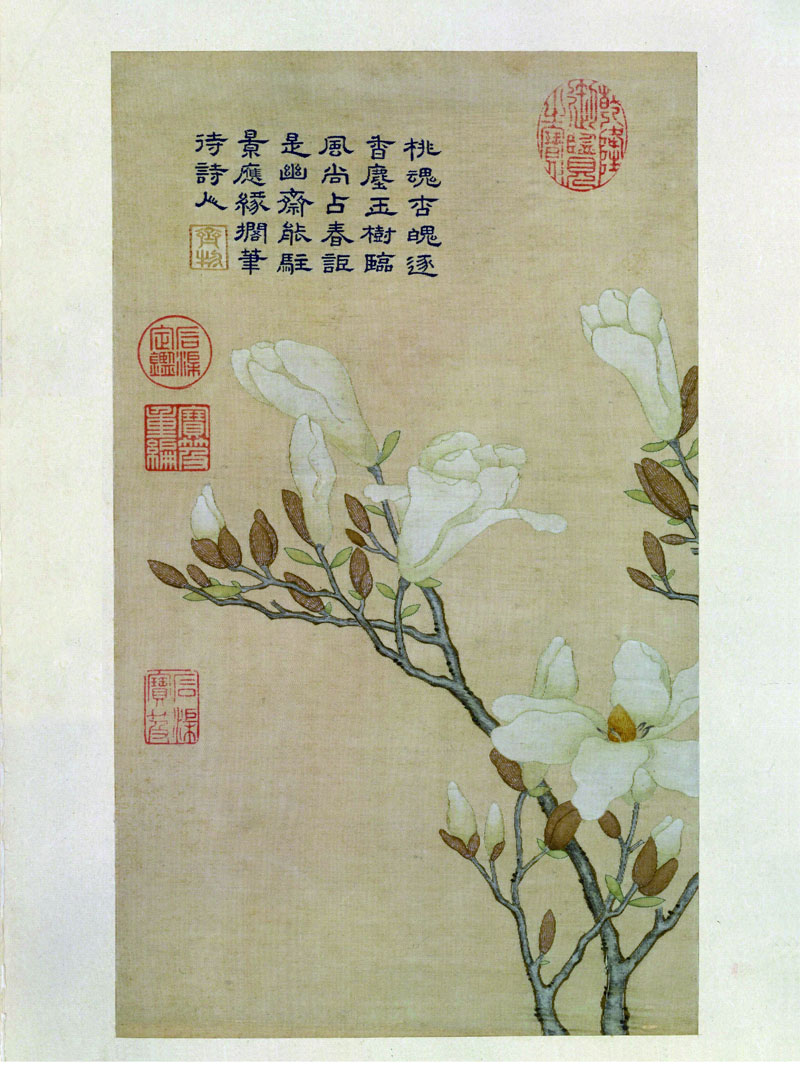 桃魂杏魄逐
香塵玉樹臨
風尚占春詎
是幽齋能駐
景應緣擱筆
待詩人
齊物
乾隆御覽之寶
石渠定鑑
寶笈重編
石渠寶笈